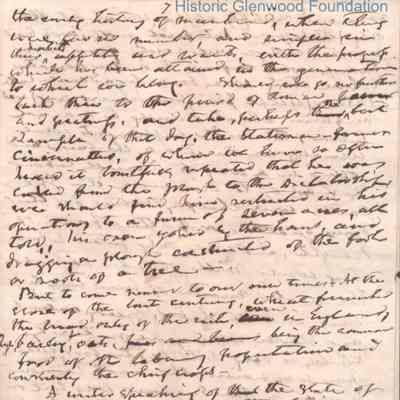 7
Historic Glenwood Foundation
the early history of mankind, when they
were few in number, and simple in
their habits, appetites and wants, with the progress
which has been attained to the generation
to which we belong. go no further
back than to the period of
and take, perhaps the best
example of that day, the Statesman farmer
Cincinnatus, of whom we have so often
heard it boastfully repeated that he was
called from the plough to the Dictatorship
we should find him restricted in his
operations to a farm of seven acres, all
told, his oxen yoked by the and
dragging a plough constructed of the fork
or roots of a tree —
But to come nearer to our own times. At the
close of the last century, wheat furnished
the bread only of the rich, even in England,
barley, oats being the common
food of the laboring population and
the chief crops —
A writer speaking of the state of